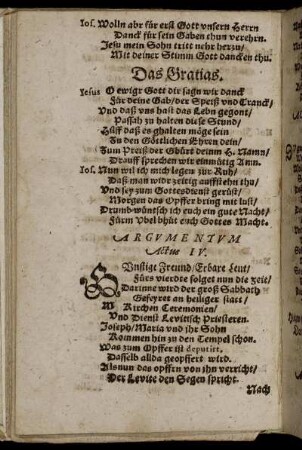 Jos. Wolln abr für erst Gott vnsern Herrn
Danck für sein Gaben thun verehrn.
Jesu mein Sohn tritt neher herzu/
Mit deiner Stimm Gott dancken thu.
Das Gratias.
Jesus O ewigr Gott dir sagn wir danck
Für deine Gab/ der Speiß vnd Tranck/
Vnd daß vns hast das Lebn gegont/
Passah zu halten diese Stund/
Hilff daß es ghalten möge sein
In den Göttlichen Ehren dein/
Zum Preiß der Gbürt deinm H. Namn/
Drauff sprechen wir einmütig Amn.
Jos. Nun wil ich mich legen zur Ruh/
Daß man widr zeitig auffstehn thu/
Vnd sey zum Gottesdienst gerüst/
Morgen das Opffer bring mit lust/
Drumb wüntsch ich euch ein gute Nacht/
Fürm Vbel bhüt euch Gottes Macht.
ARGVMENTVM
Actus IV.
GVnstige Freund/ Erbare Leut/
Fürs vierdte folget nun die zeit/
Darinne wird der groß Sabbath
Gefeyret an heiliger statt/
Mit Kirchen Ceremonien/
Vnd Dienst Levitisch Priesteren.
Joseph/ Maria vnd ihr Sohn
Kommen hin zu den Tempel schon.
Was zum Opffer ist deputirt.
Dasselb allda geopffert wird.
Als nun das opffrn von ihn verricht/
Der Levite den Segen spricht.
Nach